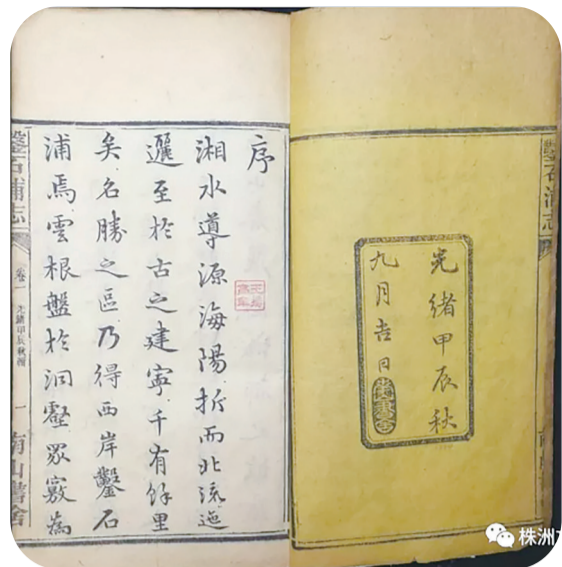 鑿石浦志
光緒甲辰秋
九月吉日
序
湘水導源海陽折而北流迤
邐至於古之建寧千有餘里
矣名勝之區乃得西岸鑿石
浦焉雲根盤於洞壑眾竅為
鑿石浦志
卷一
光緒甲辰秋
一
南山書舍
株洲